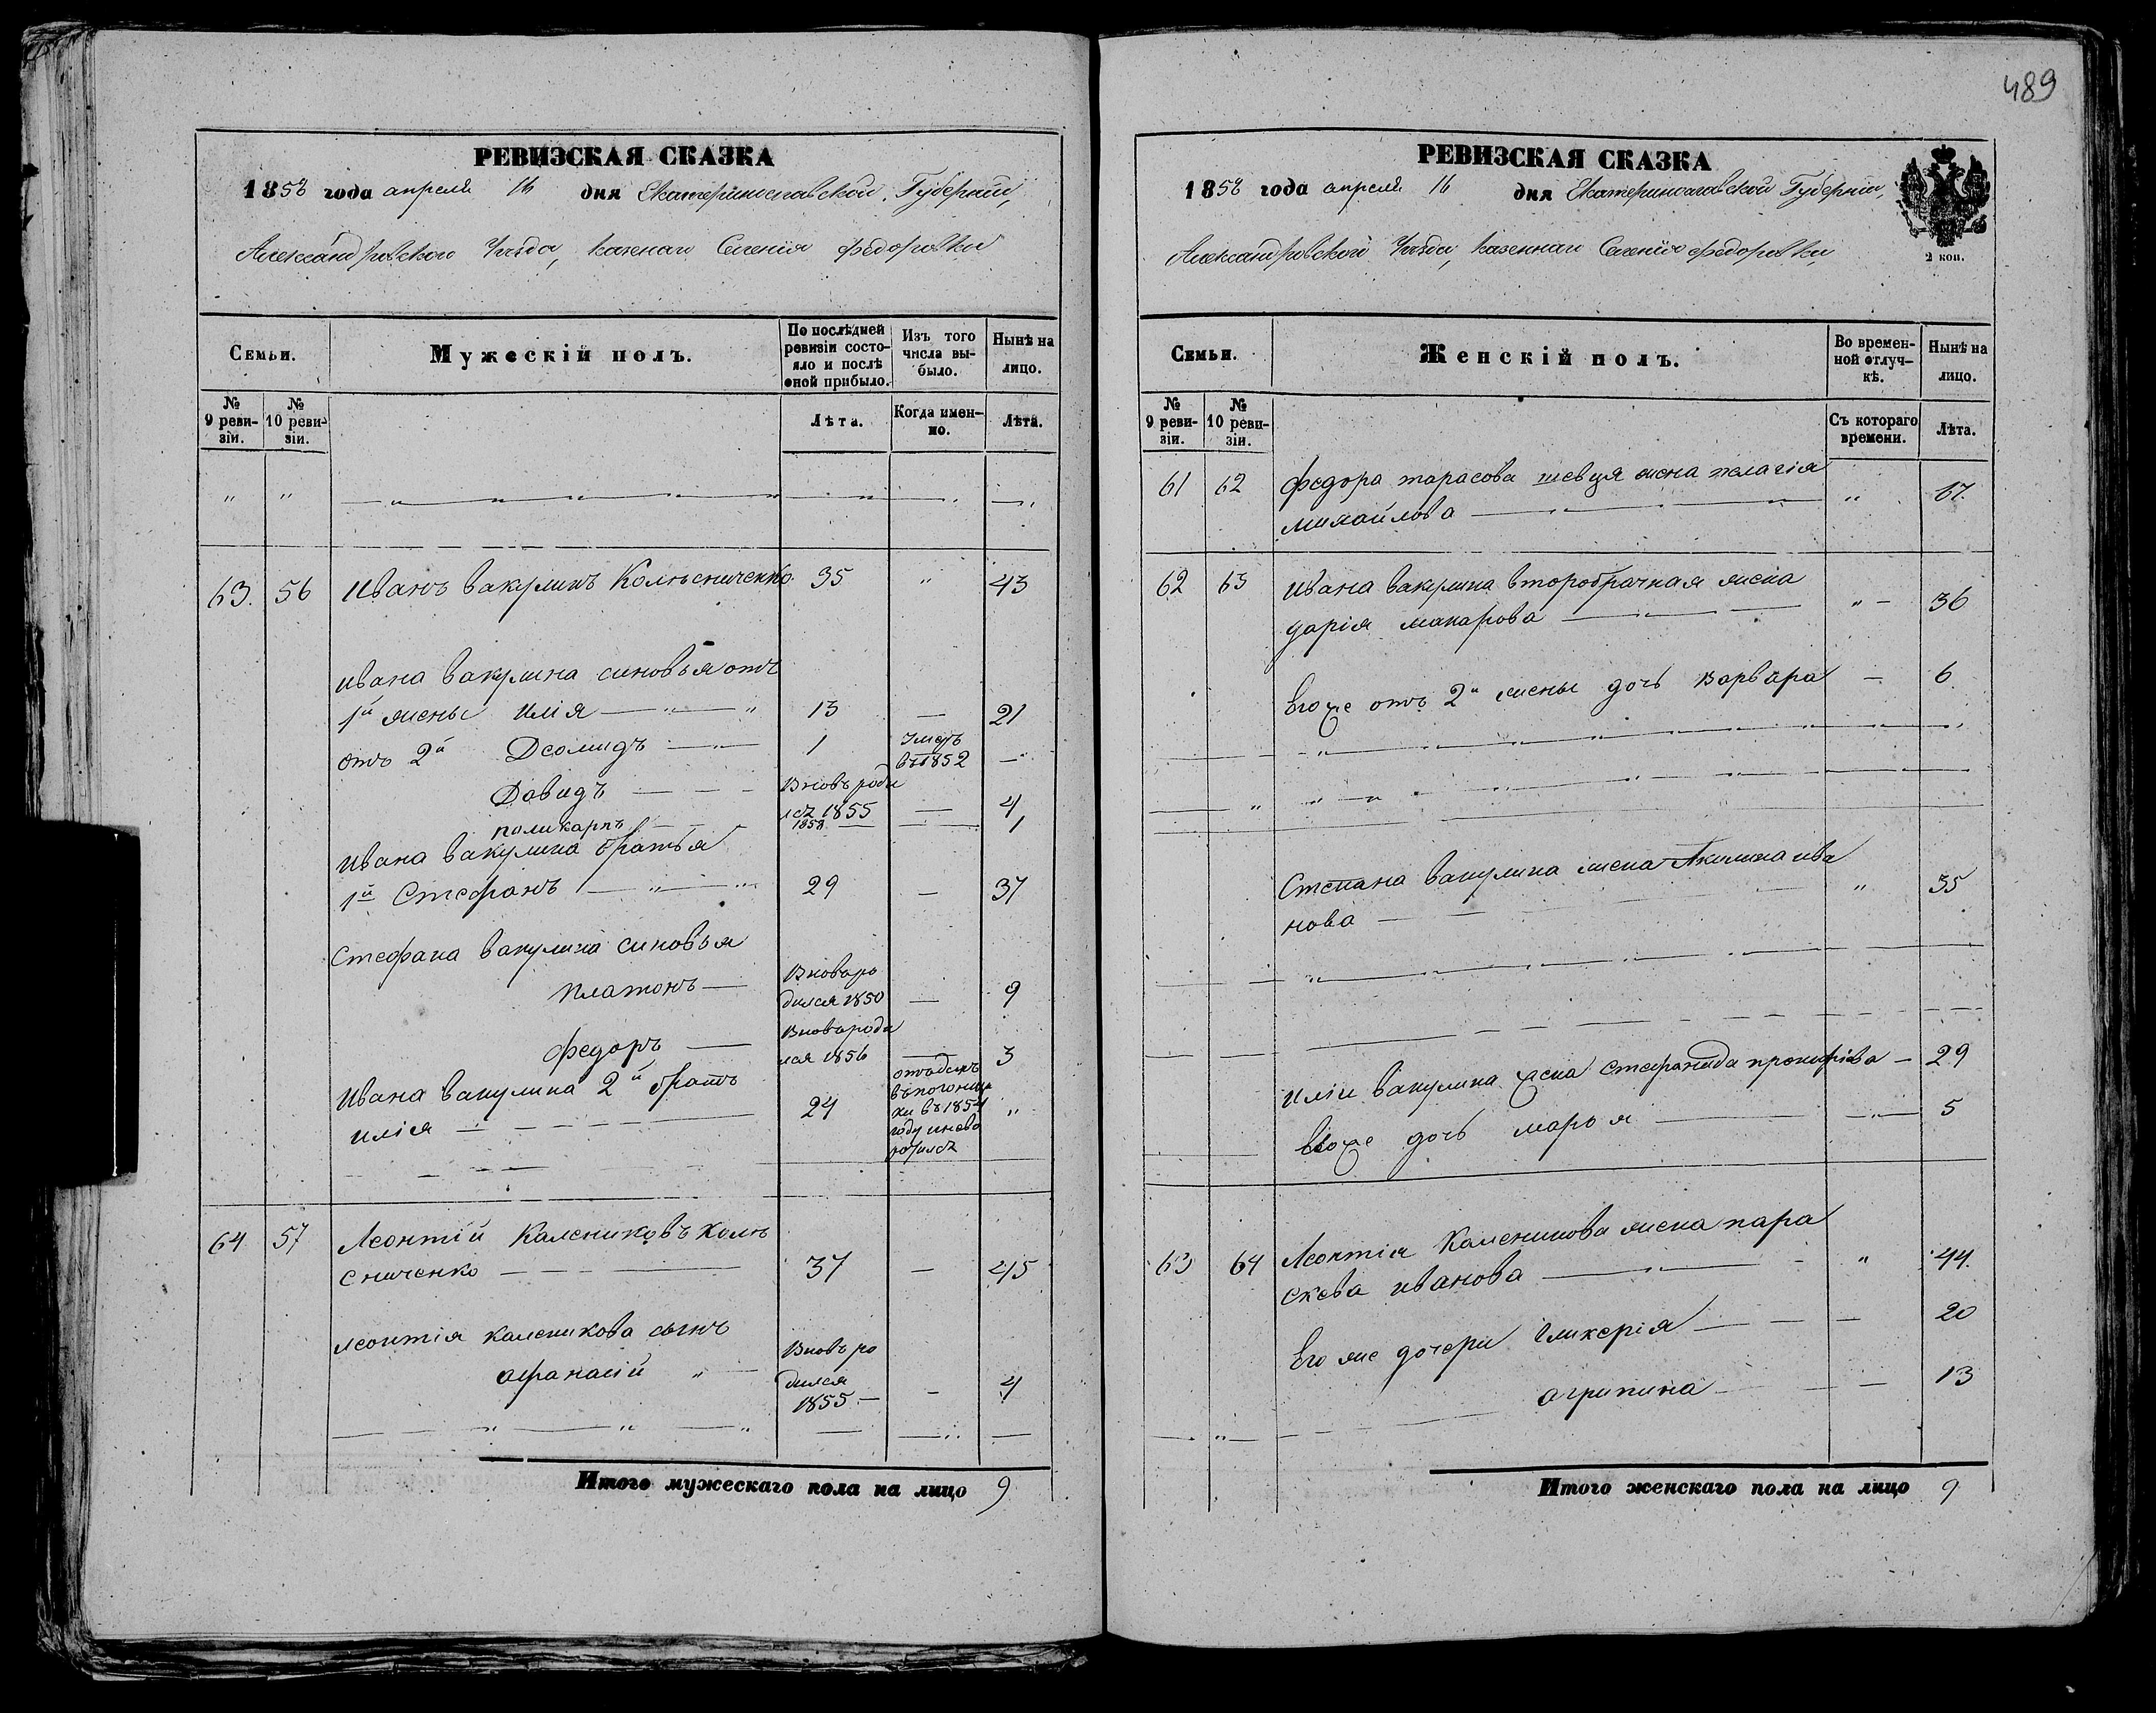 489
РЕВИЗСКАЯ СКАЗКА
1858 года апреля 16 дня Екатеринославской Губернии,
Александровского Уѣзда, казеннаго Селенія Федоровки
Семьи.
Мужескій полъ.
По послѣдней ревизіи состояло и послѣ оной прибыло.
Изъ того числа выбыло.
Нынѣ на лицо.
№ 9 ревизіи.
№ 10 ревизіи.
Лѣта.
Когда именно.
Лѣта.
63. 56 Иванъ Вакулинъ Колѣсниченко 35 " 43
ивана вакулина синовья отъ
1й жены илія 13 — 21
отъ 2й Дсомидъ 1 Умеръ въ 1852 —
Давидъ Вновь роди лсъ 1855 — 4
поликарпъ 1858 — 1
Ивана вакулина братья
1й Стефанъ 29 — 37
Стефана вакулина синовья
Платонъ — Вновь ро дился 1850 — 9
Федоръ — Вновь роди лся 1856 — 3
Ивана вакулина 2й братъ
илія 24 въ 1854 году "
64 57 Леонтій Калениковъ Колѣ
сниченко 37 — 45
леонтія каленикова сынъ
афанасій " Вновь ро дился 1855 — 4
Итого мужескаго пола на лицо 9
РЕВИЗСКАЯ СКАЗКА
1858 года апреля 16 дня Екатеринославской Губерніи,
Александровского Уѣзда, казеннаго Селенія Федоровки,
2 коп.
Семьи.
Женскій полъ.
Во временной отлучкѣ.
Нынѣ на лицо.
№ 9 ревизіи.
№ 10 ревизіи.
Съ котораго времени.
Лѣта.
61 62 Федора тарасова шевця жена пелагія
михайлова " 67.
62 63 Ивана вакулина второбрачная жена
дарія макарова " 36
Егоже отъ 2й жены дочь варвара — 6
Степана вакулина жена Акилина ива
нова " 35
иліи вакулина жена стефанида прокофіева — 29
Егоже дочь марья 5
63 64 Леонтія Каленикова жена пара
скева иванова " 44.
Его же дочери гликерія — 20
агрипина — 13
Итого женскаго пола на лицо 9